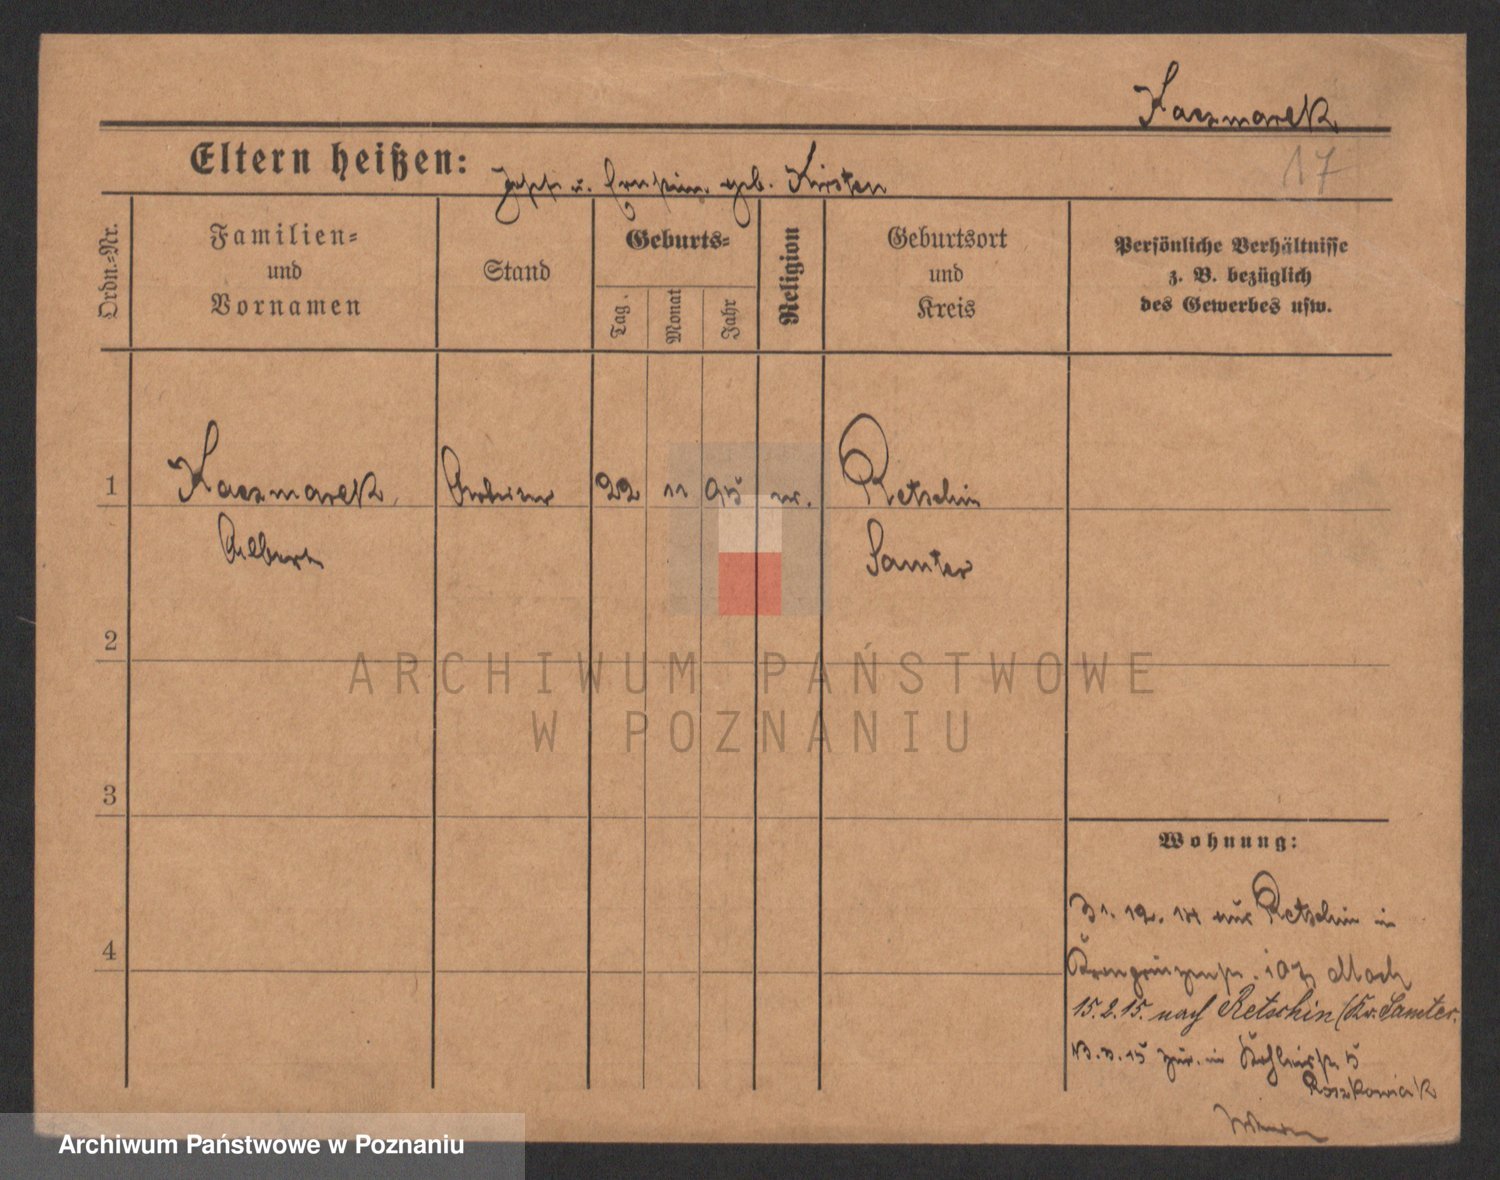 Kaczmarek
17
Eltern heißen: Josef u. geb. Kirsten
Ordn.-Nr.
Familien-
und
Vornamen
Stand
Geburts-
Tag.
Monat
Jahr
Religion
Geburtsort
und
Kreis
Persönliche Verhältnisse
z. B. bezüglich
des Gewerbes usw.
1 Kaczmarek, Arbeiter 22 11 95 Retschin
Albert Samter
2
3
4
Wohnung:
31. 12. 14 aus Retschin in
Kronprinzenstr.
15. 2. 15. nach Retschin (Kr. Samter.
zur. in 5
Roszkowiak
ARCHIWUM PAŃSTWOWE
W POZNANIU
Archiwum Państwowe w Poznaniu